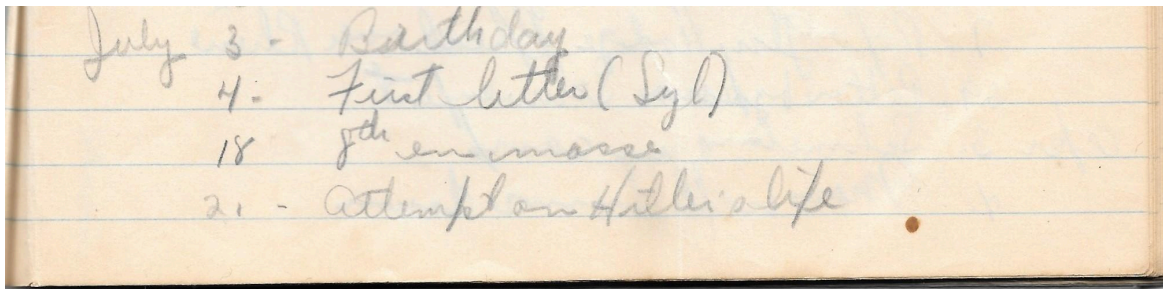 July 3 - Birthday
4 - First letter (Syl)
18 8th en masse
21 - Attempt on Hitler's life